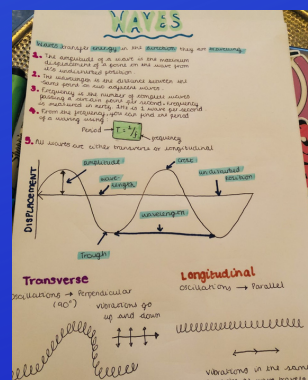 WAVES
Waves transfer energy in the direction they are travelling
1. The amplitude of a wave is the maximum
displacement of a point in the wave from
its undisturbed position
2. The wavelength is the distance between the
same point on two adjacent waves.
3. Frequency is the number of complete waves
passing a certain point per second. Frequency
is measured in hertz. 1Hz is 1 wave per second
4. From the frequency, you can find the period
of a wave using
Period → T = 1/f
frequency
5. All waves are either transverse or longitudinal
amplitude
crest
wave-
length
undisturbed
position
DISPLACEMENT
wavelength
Trough
Transverse
Longitudinal
Oscillations → Perpendicular
(90°)
Oscillations → Parallel
vibrations go
up and down
vibrations in the same